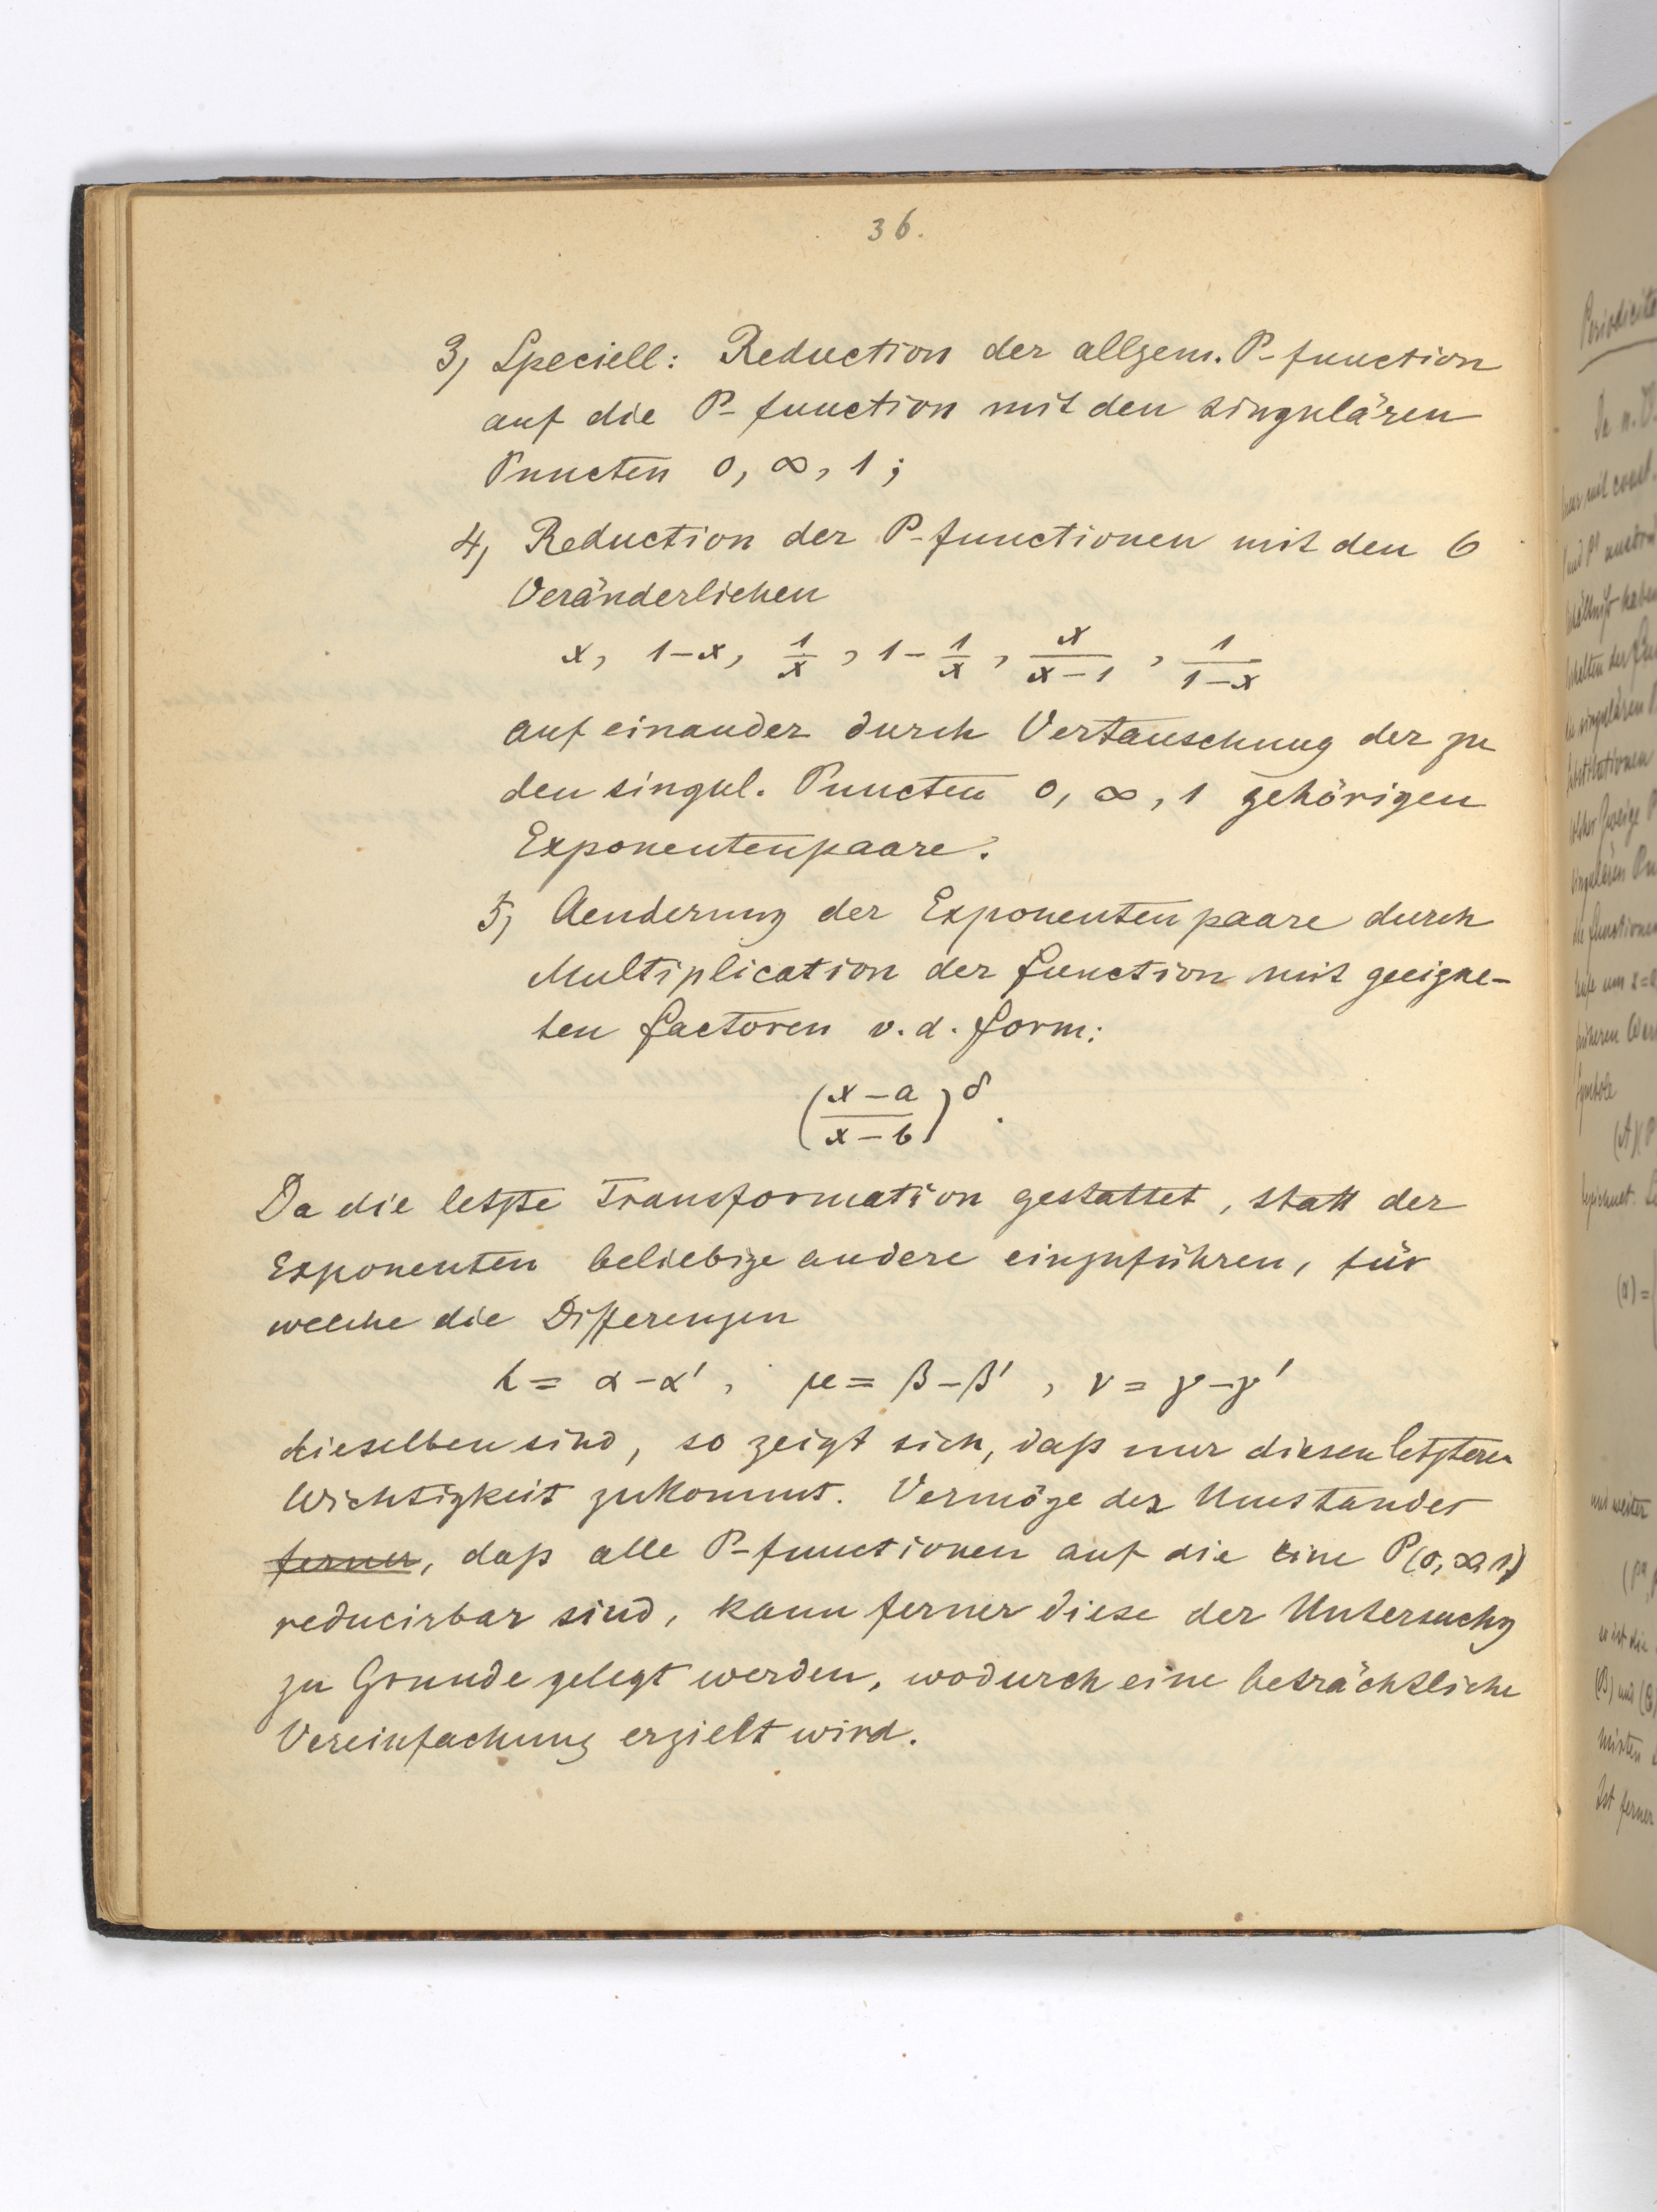 36.
3) Speciell: Reduction der allgem. P-function
auf die P-function mit den singulären
Puncten 0, ∞, 1;
4) Reduction der P-functionen mit den 6
Veränderlichen
x, 1-x, 1/x, 1-1/x, x/(x-1), 1/(1-x)
auf einander durch Vertauschung der zu
den singul. Puncten 0, ∞, 1 gehörigen
Exponentenpaare.
5) Aenderung der Exponentenpaare durch
Multiplication der function mit geeigne-
ten factoren v. d. form:
((x-a)/(x-b))^δ.
Da die letzte Transformation gestattet, statt der
Exponenten beliebige andere einzuführen, für
welche die Differenzen
λ = α-α', μ = β-β', ν = γ-γ'
dieselben sind, so zeigt sich, daß nur diesen letzteren
Wichtigkeit zukommt. Vermöge des Umstandes
ferner, daß alle P-functionen auf die eine P(0, ∞, 1)
reducirbar sind, kann ferner diese der Untersuchg
zu Grunde gelegt werden, wodurch eine beträchtliche
Vereinfachung erzielt wird.